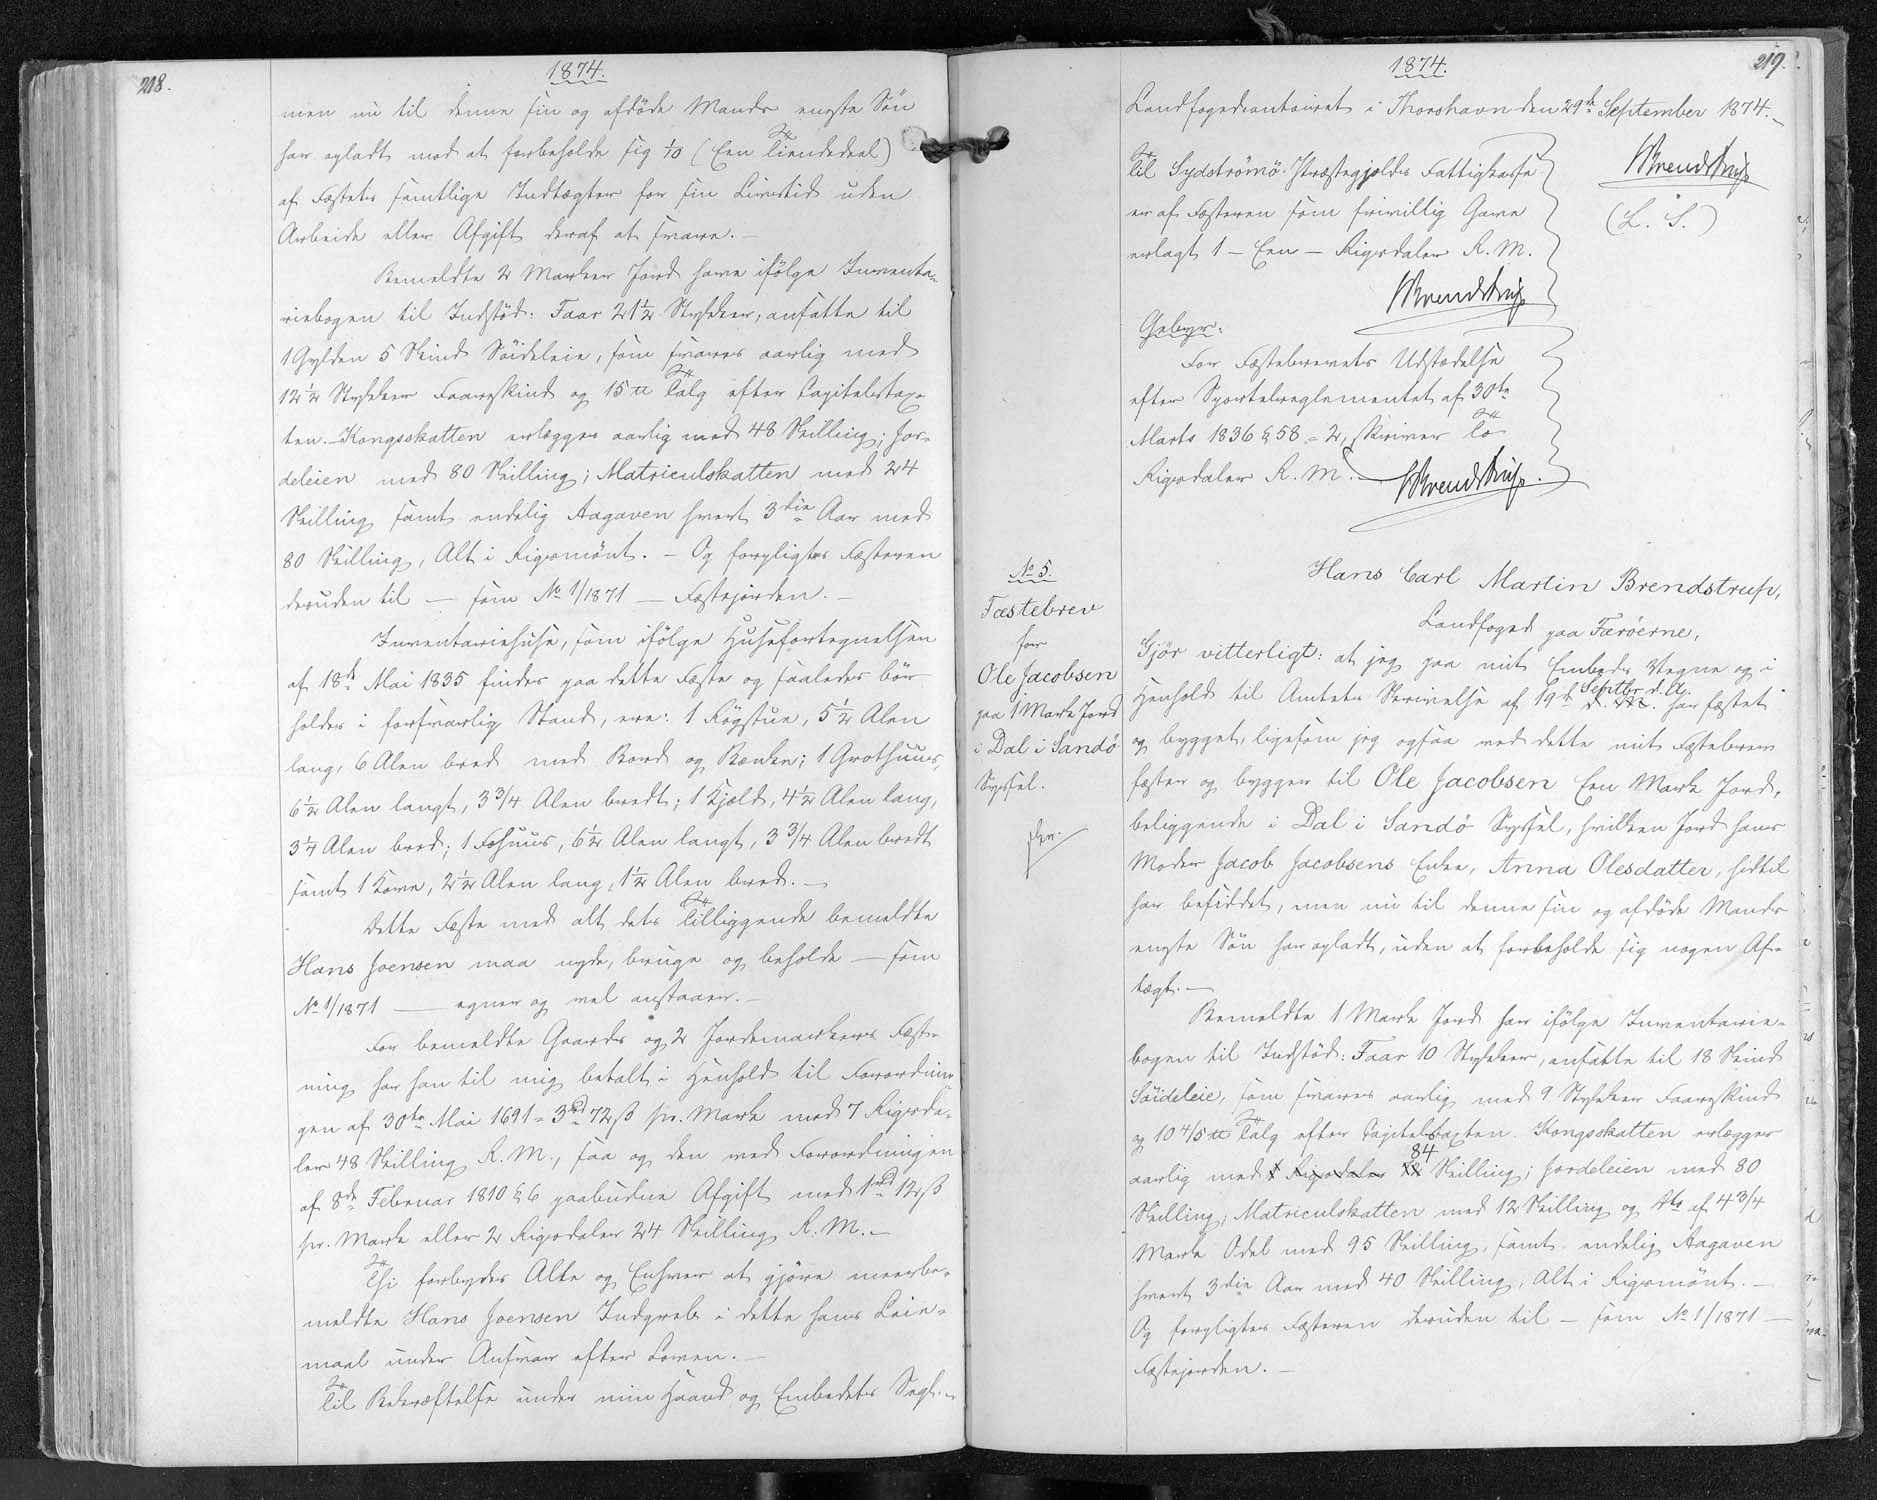 218.
1874.
men nu til denne sin og afdöde Mands yngste Sön
har opladt mod at forbeholde sig 1/10 (Een Tiendedeel)
af Fæstets samtlige Indtægter for sin Livstid uden
Arbeide eller Afgift deraf at svare. —
Bemeldte 2 Marker Jord have ifölge Inventa-
riebogen til Indstöd: Faar 21½ Stykker, ansatte til
1 Gylden 5 Skind Söideleie, som svares aarlig med
12½ Stykker Faareskind og 15 ℔ Talg efter Capitelstax-
ten. – Kongsskatten erlægges aarlig med 48 Skilling; Jor-
deleien med 80 Skilling; Matriculskatten med 24
Skilling samt endelig Aagaven hvert 3die Aar med
80 Skilling, Alt i Rigsmönt. – Og forpligtes Fæsteren
desuden til — som No 1/1871 — Fæstejorden. —
Inventariehuse, som ifölge Husefortegnelsen
af 18de Mai 1835 findes paa dette Fæste og saaledes bör
holdes i forsvarlig Stand, ere: 1 Rögstue, 5½ Alen
lang, 6 Alen bred med Bord og Bænke; 1 Grothuus,
6½ Alen langt, 3 3/4 Alen bredt; 1 Hjald, 4½ Alen lang,
3¼ Alen bred; 1 Fæhuus, 6½ Alen langt, 3 3/4 Alen bredt
samt 1 Kove, 2½ Alen lang, 1½ Alen bred. —
Dette Fæste med alt dets Tilliggende bemeldte
Hans Joensen maa nyde, bruge og beholde — som
No 1/1871 — egner og vel anstaaer. —
For bemeldte Gaards og 2 Jordemarkers Fæst-
ning har han til mig betalt i Henhold til Forordnin-
gen af 30te Mai 1691 = 3 Rd 72 ß pr. Mark med 7 Rigsda-
ler 48 Skilling R. M., saa og den ved Forordningen
af 8de Februar 1810 § 6 paabudne Afgift med 1 Rd 12 ß
pr. Mark eller 2 Rigsdaler 24 Skilling R. M. —
Thi forbydes Alle og Enhver at gjöre meerbe-
meldte Hans Joensen Indgreb i dette hans Leie-
maal under Ansvar efter Loven. —
Til Bekræftelse under min Haand og Embedets Segl. —
1874.
219.
Landfogedcontoiret i Thorshavn den 29de September 1874. —
Brendstrup
(L. S.)
Til Sydströmö Præstegjelds Fattigkasse
er af Fæsteren som frivillig Gave
erlagt 1 – Een – Rigsdaler R. M.
Brendstrup
Gebyr:
For Fæstebrevets Udstædelse
efter Sportelreglementet af 30te
Marts 1836 § 58 = 2, skriver To
Rigsdaler R. M. —
Brendstrup.
No 5.
Fæstebrev
for
Ole Jacobsen
paa 1 Mark Jord
i Dal i Sandö
Syssel.
Hans Carl Martin Brendstrup,
Landfoged paa Færöerne,
Gjör vitterligt: at jeg paa mit Embeds Vegne og i
Henhold til Amtets Skrivelse af 19de Septbr. d. A. har fæstet
og bygget, ligesom jeg ogsaa ved dette mit Fæstebrev
fæster og bygger til Ole Jacobsen Een Mark Jord,
beliggende i Dal i Sandö Syssel, hvilken Jord hans
Moder Jacob Jacobsens Enke, Anna Olesdatter, hidtil
har besiddet, men nu til denne sin og afdöde Mands
yngste Sön har opladt, uden at forbeholde sig nogen Af-
tægt. —
Bemeldte 1 Mark Jord har ifölge Inventarie-
bogen til Indstöd: Faar 10 Stykker, ansatte til 18 Skind
Söideleie, som svares aarlig med 9 Stykker Faareskind
og 10 4/5 ℔ Talg efter Capitelstaxten. Kongsskatten erlægges
aarlig med 84 Skilling; Jordeleien med 80
Skilling; Matriculskatten med 12 Skilling og do af 4 3/4
Mark Odel med 95 Skilling, samt endelig Aagaven
hvert 3die Aar med 40 Skilling, Alt i Rigsmönt. —
Og forpligtes Fæsteren desuden til — som No 1/1871 —
Fæstejorden. —